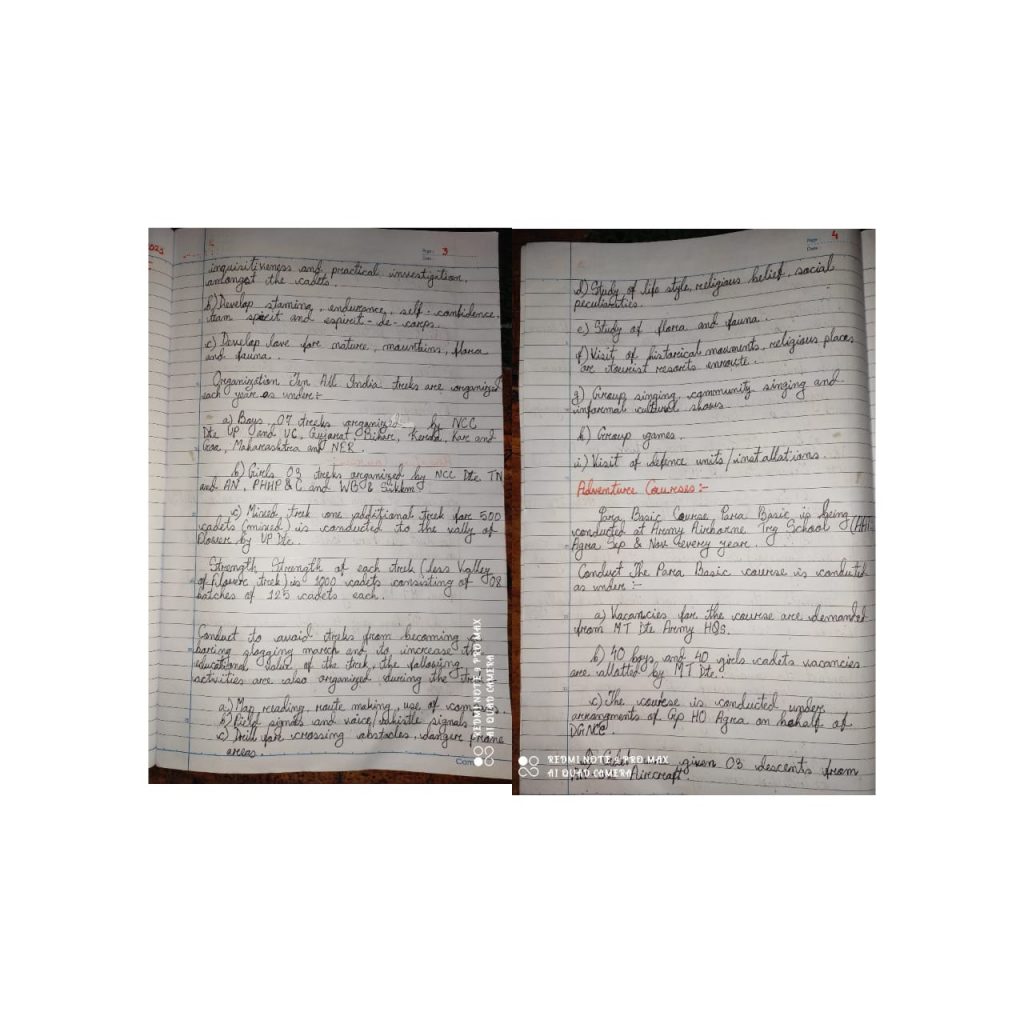 Page: 3
Date:
inquisitiveness and practical investigation
amongst the cadets.
b) Develop stamina, endurance, self-confidence
team spirit and espirit-de-corps.
c) Develop love for nature, mountains, flora
and fauna.
Organization Ten All India treks are organized
each year as under:
a) Boys 07 treks organized by NCC
Dte UP and UC, Gujarat, Bihar, Kerala, Kar and
Goa, Maharashtra and NER.
b) Girls 03 treks organized by NCC Dte TN
and AN, PHHP & C and WB & Sikkim
c) Mixed trek one additional trek for 500
cadets (mixed) is conducted to the vally of
Flower by UP Dte.
Strength Strength of each trek (less Valley
of Flower trek) is 1000 cadets consisting of 08
batches of 125 cadets each.
Conduct to avoid treks from becoming
boring slogging march and to increase the
educational value of the trek, the following
activities are also organized during the
a) Map reading, route making, use of
b) Field signals and voice/whistle signals
c) Drill for crossing obstacles, danger prone
areas.
REDMI NOTE 9 PRO MAX
AI QUAD CAMERA
Page: 4
Date:
d) Study of life style, religious belief, social
peculiarities.
e) Study of flora and fauna.
f) Visit of historical monuments, religious places
are tourist resorts enroute.
g) Group singing, community singing and
informal cultural shows
h) Group games.
i) Visit of defence units/installations.
Adventure Courses:-
Para Basic Course Para Basic is being
conducted at Army Airborne Trg School
Agra Sep & Nov every year.
Conduct The Para Basic course is conducted
as under:-
a) Vacancies for the course are demanded
from MT Dte Army HQs.
b) 40 boys and 40 girls cadets vacancies
are allotted by MT Dte.
c) The course is conducted under
arrangements of Gp HQ Agra on behalf of
DGNCC.
given 03 descents from
Aircraft.
REDMI NOTE 9 PRO MAX
AI QUAD CAMERA